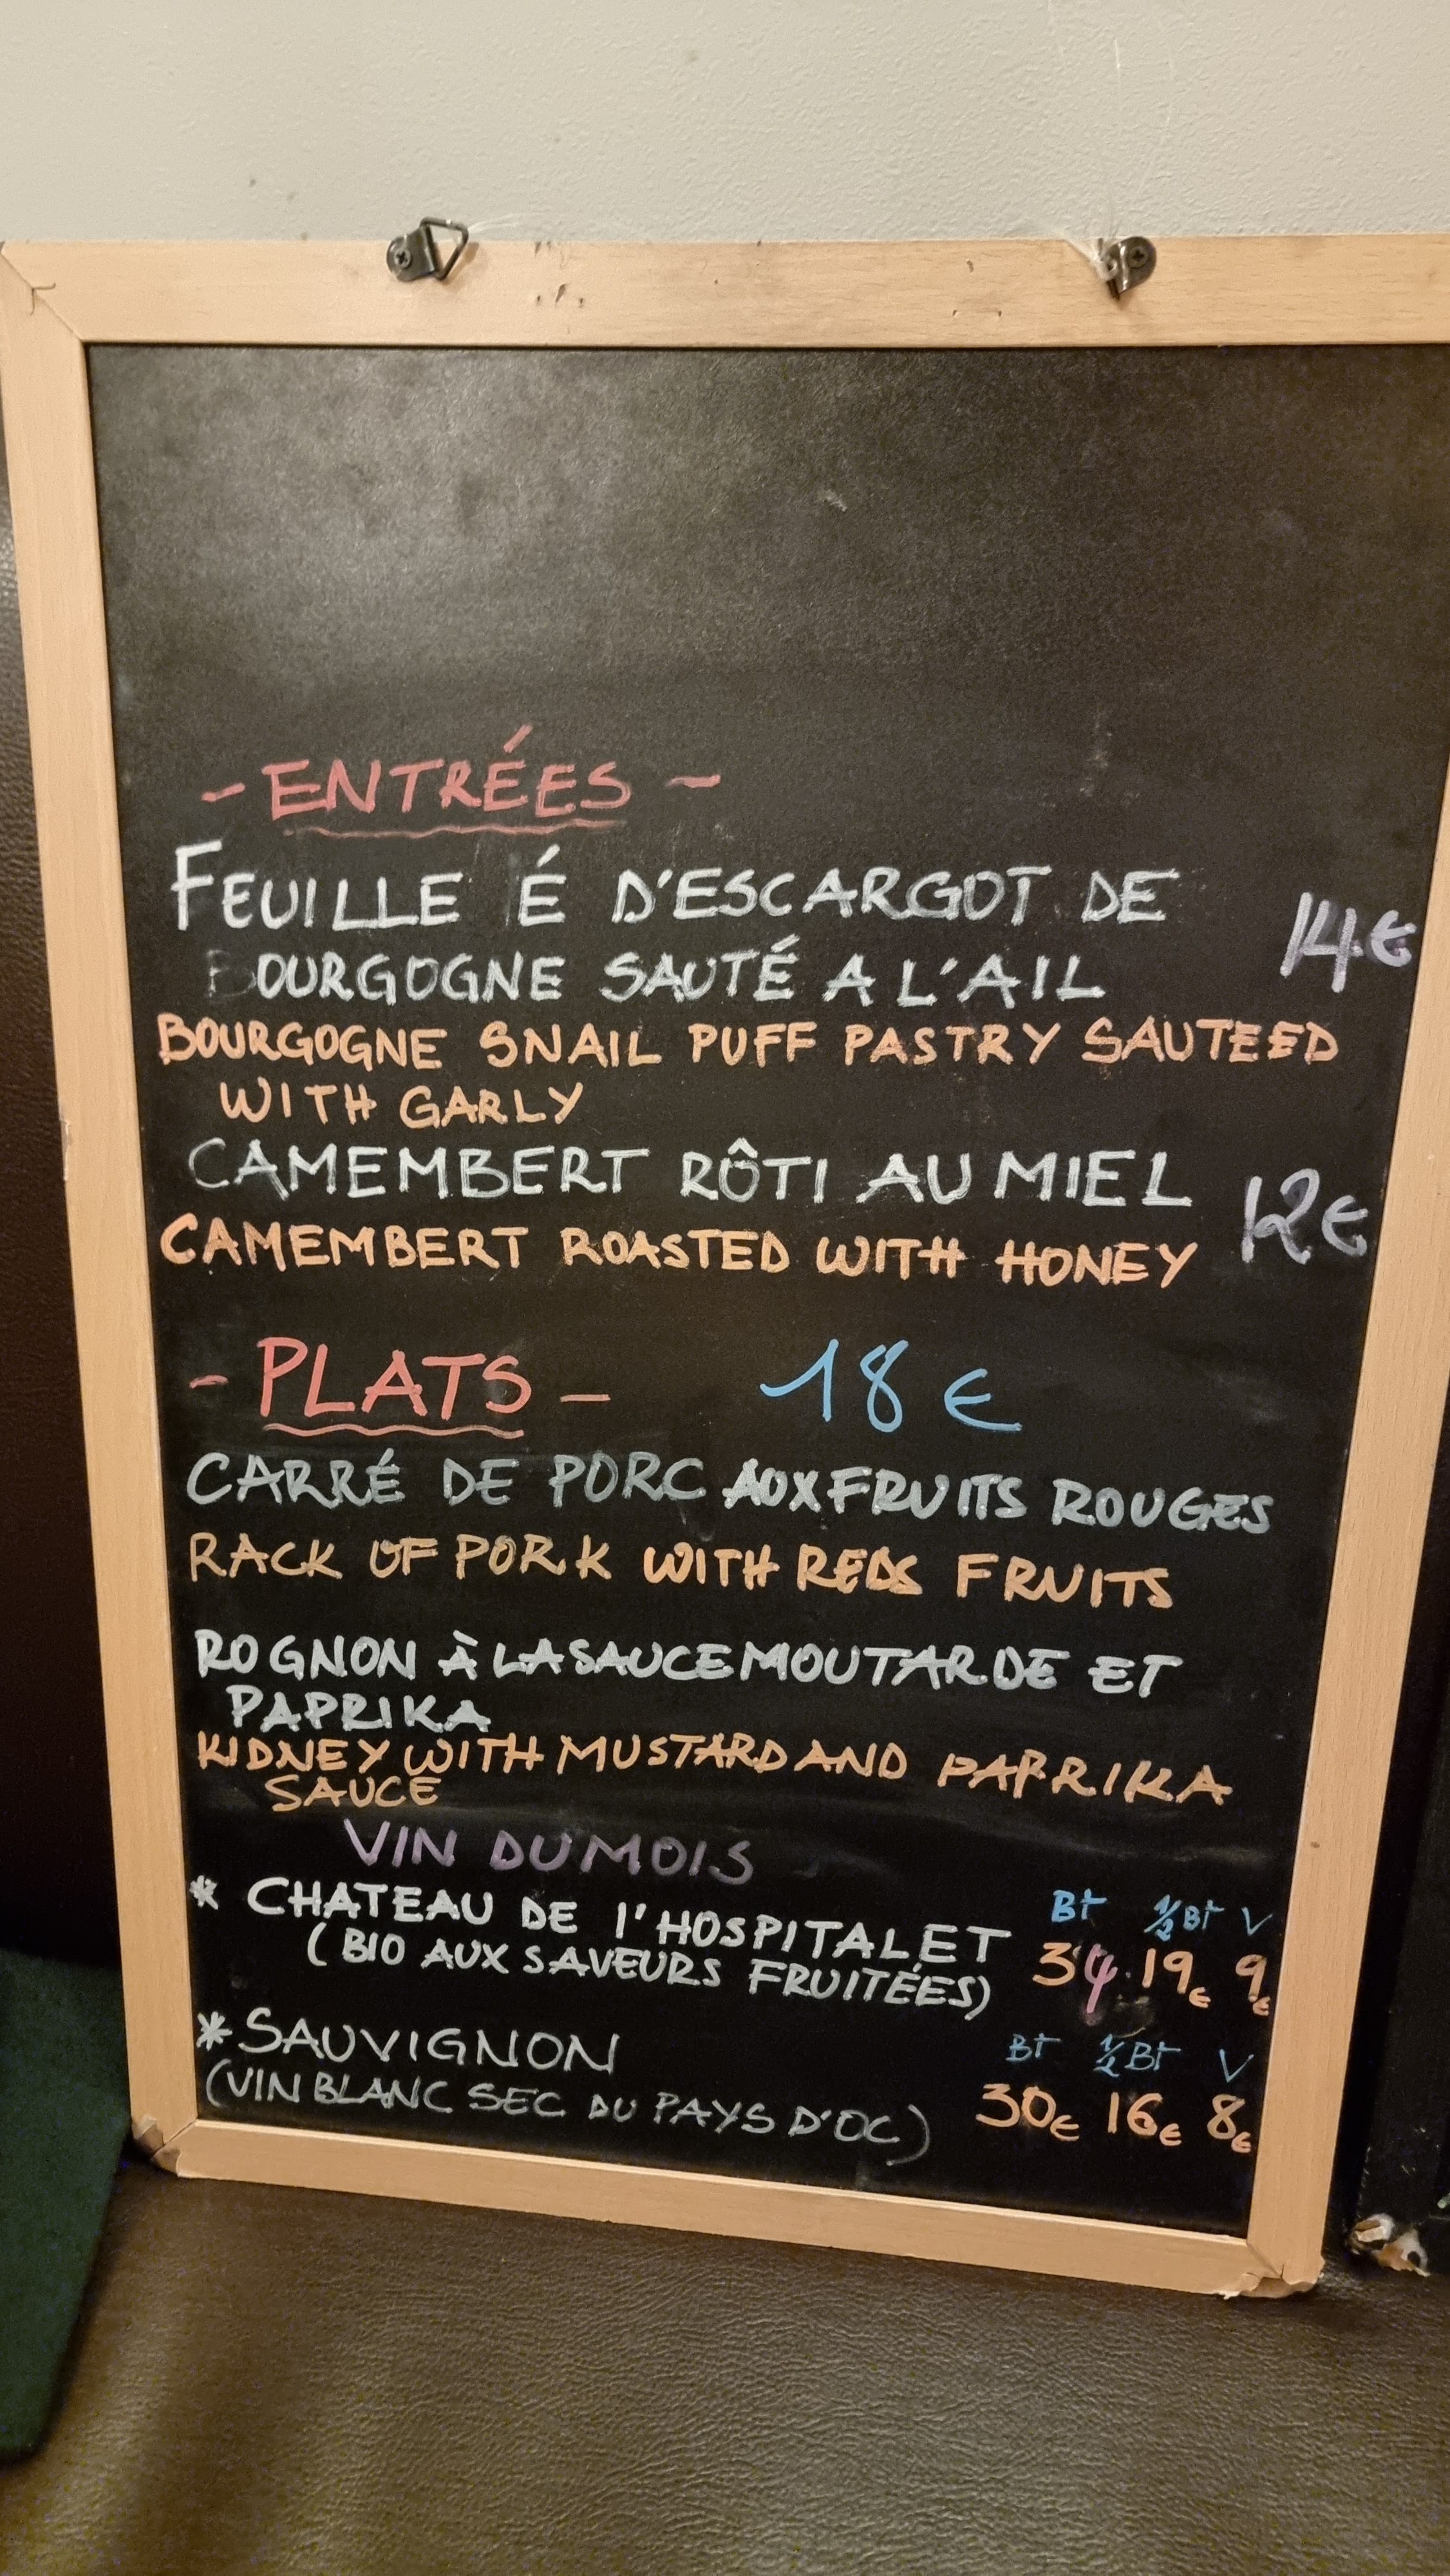 - ENTRÉES -
FEUILLE É D'ESCARGOT DE
BOURGOGNE SAUTÉ A L'AIL 14€
BOURGOGNE SNAIL PUFF PASTRY SAUTEED
WITH GARLY
CAMEMBERT RÔTI AU MIEL 12€
CAMEMBERT ROASTED WITH HONEY
- PLATS - 18€
CARRÉ DE PORC AUX FRUITS ROUGES
RACK OF PORK WITH REDS FRUITS
ROGNON À LA SAUCE MOUTARDE ET
PAPRIKA
KIDNEY WITH MUSTARD AND PAPRIKA
SAUCE
VIN DU MOIS
* CHATEAU DE l'HOSPITALET Bt 1/2 Bt V
(BIO AUX SAVEURS FRUITÉES) 34 19€ 9€
* SAUVIGNON Bt 1/2 Bt V
(VIN BLANC SEC DU PAYS D'OC) 30€ 16€ 8€